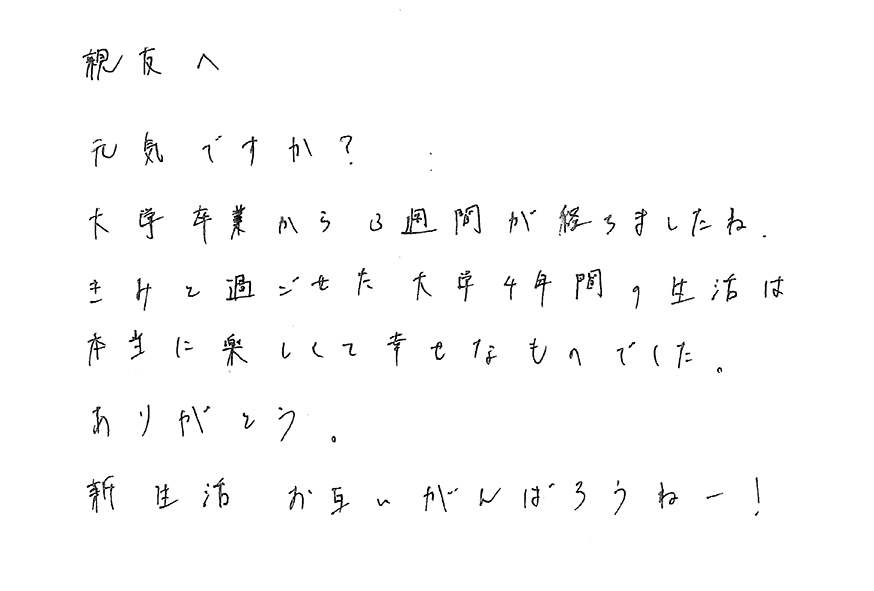 親友へ
元気ですか?
大学卒業から3週間が経ちましたね.
きみと過ごせた大学4年間の生活は
本当に楽しくて幸せなものでした。
ありがとう。
新生活 お互いがんばろうねー!